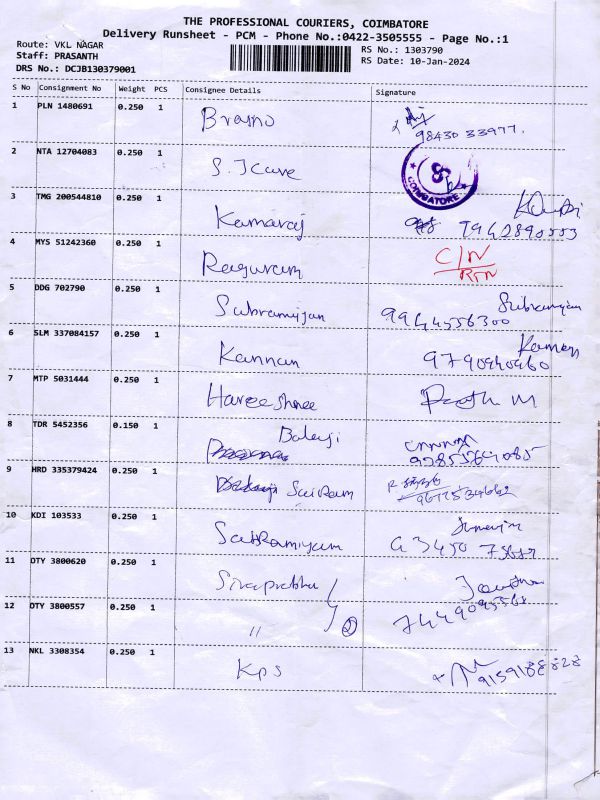 THE PROFESSIONAL COURIERS, COIMBATORE
Delivery Runsheet - PCM - Phone No.:0422-3505555 - Page No.:1
Route: VKL NAGAR
Staff: PRASANTH
DRS No.: DCJB130379001
RS No.: 1303790
RS Date: 10-Jan-2024
S No Consignment No Weight PCS Consignee Details Signature
1 PLN 1480691 0.250 1
98430 33977.
2 NTA 12704083 0.250 1 S. J Care
COIMBATORE
3 TMG 200544810 0.250 1 Kamaraj
4 MYS 51242360 0.250 1 Raguram C/N
RTN
5 DDG 702790 0.250 1 Subramiyan
9944556300
6 SLM 337084157 0.250 1 Kannan
9790940460
7 MTP 5031444 0.250 1 Hareeshree
8 TDR 5452356 0.150 1 Balaji
9 HRD 335379424 0.250 1 SaiRam
10 KDI 103533 0.250 1 SabRamiyam
11 OTY 3800620 0.250 1 Sivaprabha
12 OTY 3800557 0.250 1 " 2
13 NKL 3308354 0.250 1 Kps 9159188828